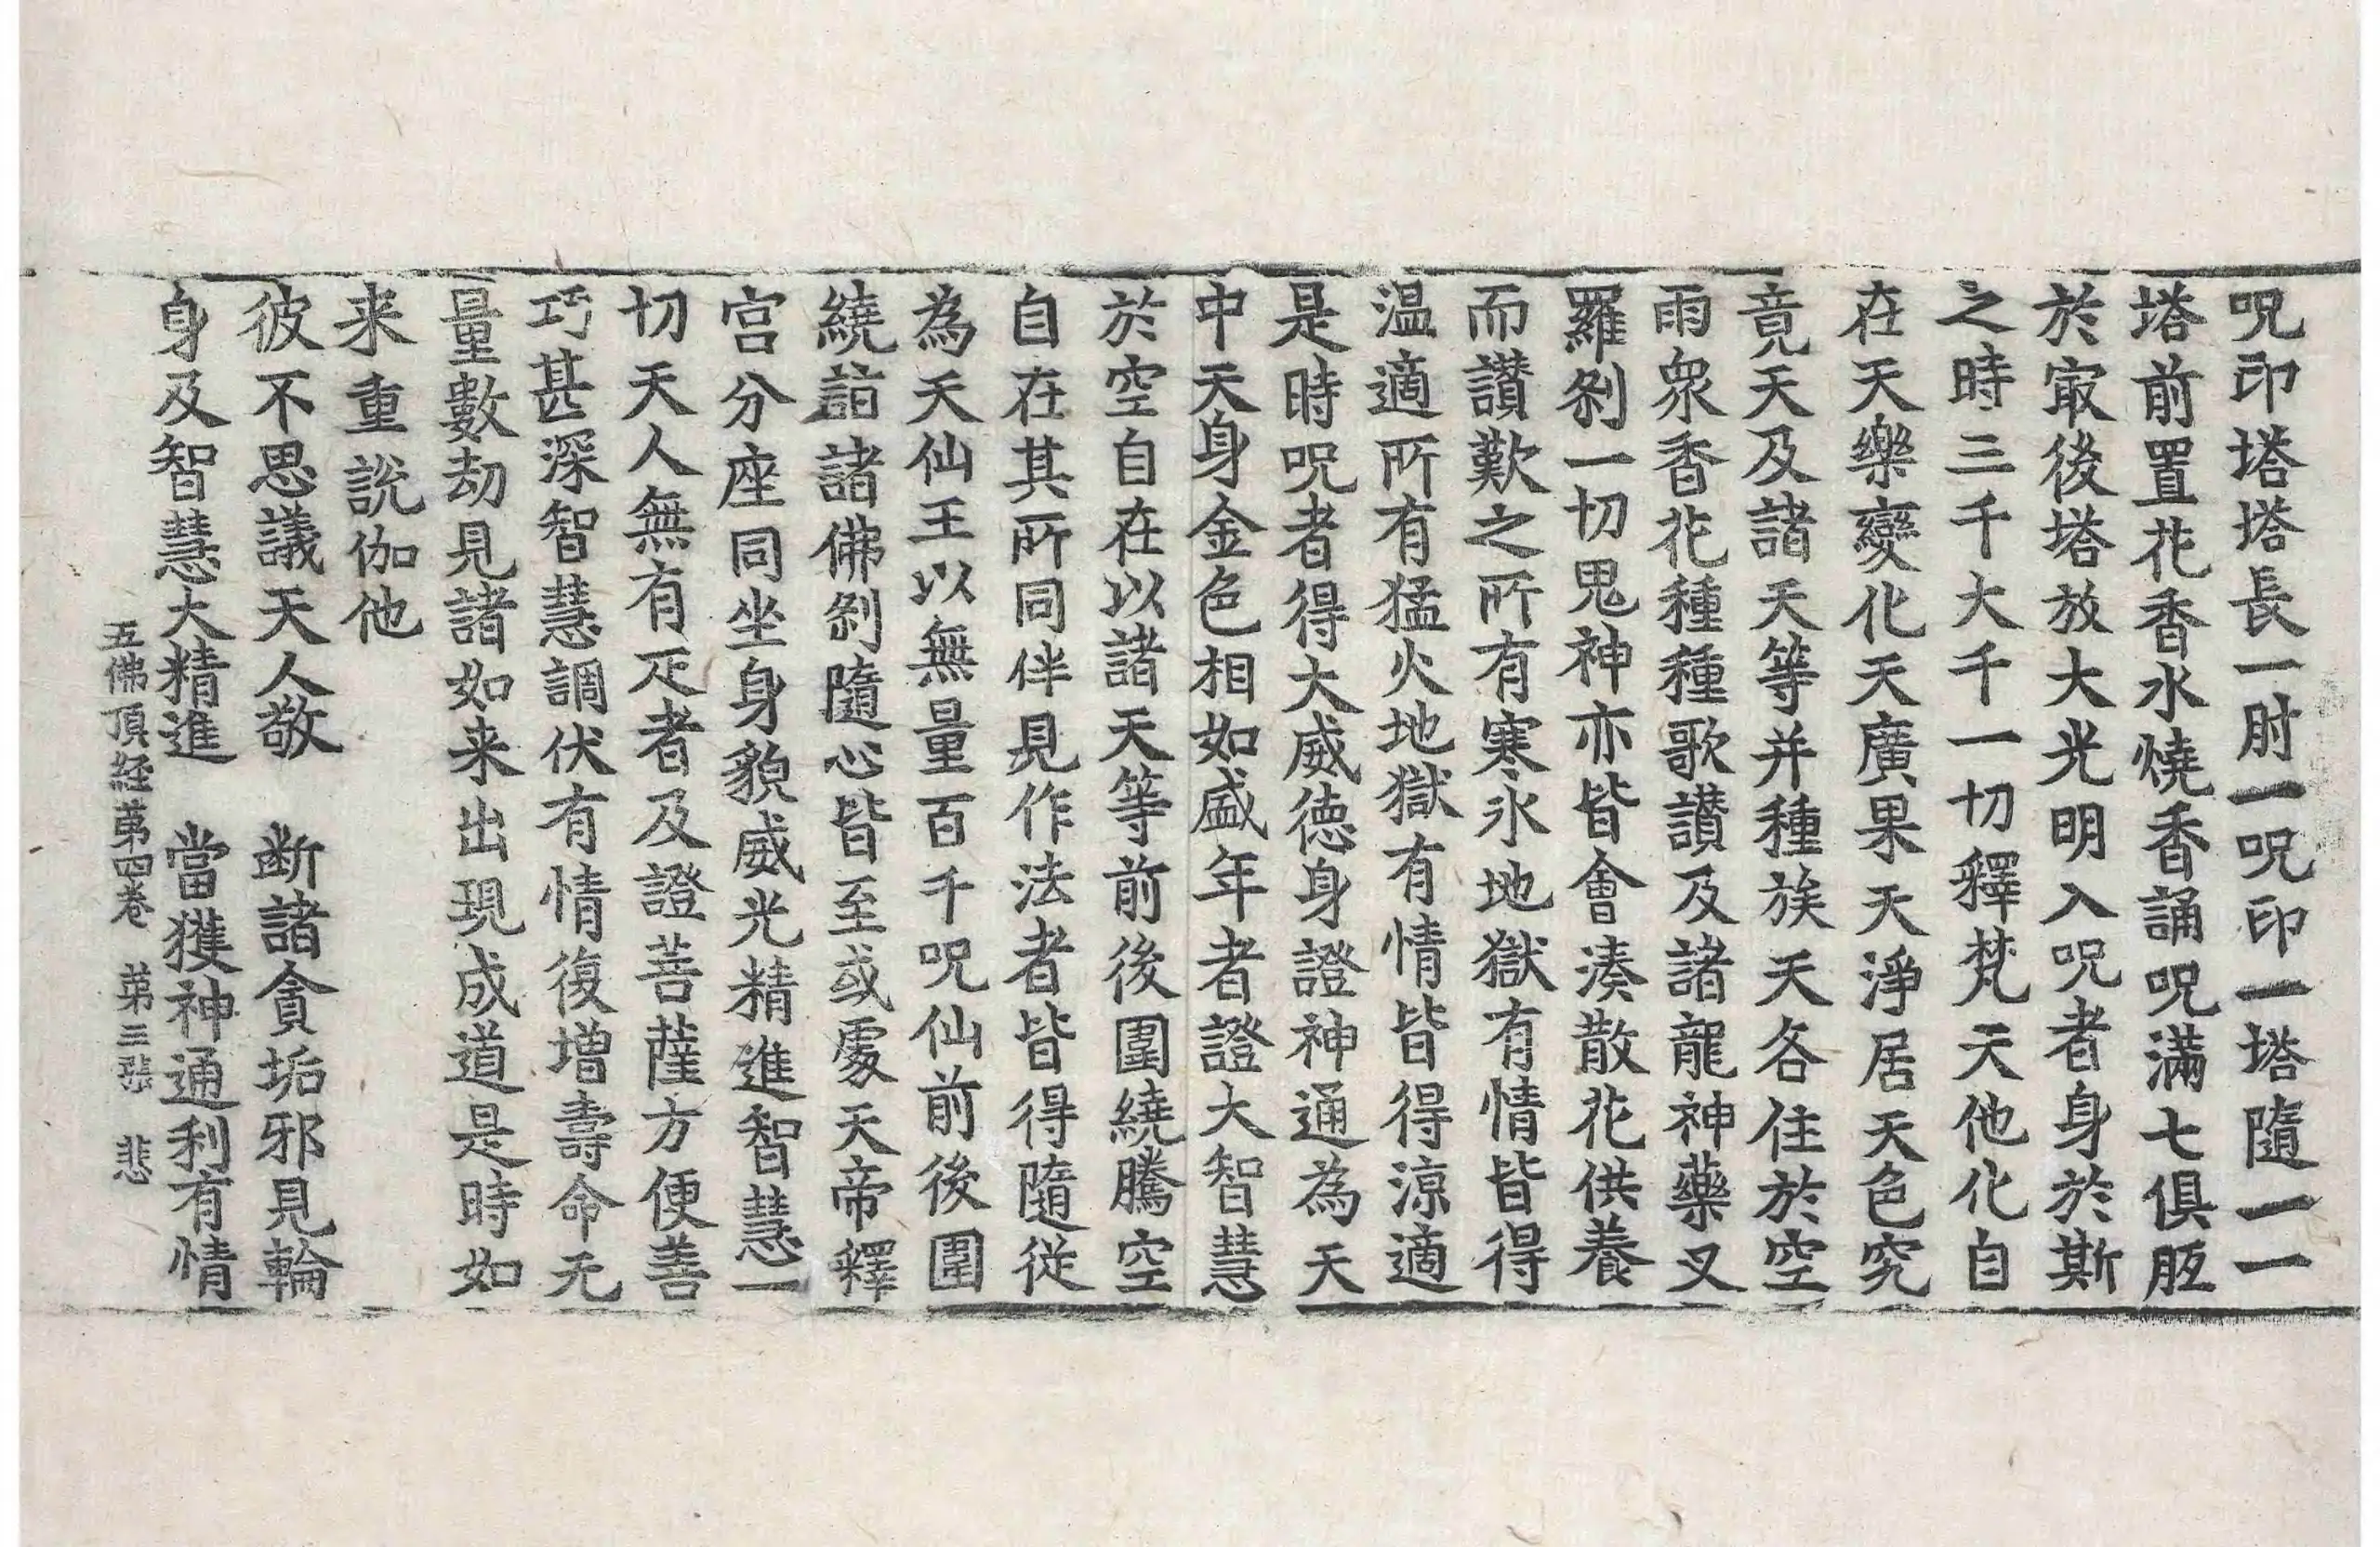 呪印塔塔長一肘一呪印一塔隨一一
塔前置花香水燒香誦呪滿七俱胝
於㝡後塔放大光明入呪者身於斯
之時三千大千一切釋梵天他化自
在天樂變化天廣果天淨居天色究
竟天及諸天等并種族天各住於空
雨衆香花種種歌讃及諸龍神藥叉
羅剎一切鬼神亦皆會湊散花供養
而讃歎之所有寒氷地獄有情皆得
温適所有猛火地獄有情皆得涼適
是時呪者得大威德身證神通為天
中天身金色相如盛年者證大智慧
於空自在以諸天等前後圍繞騰空
自在其所同伴見作法者皆得隨從
為天仙王以無量百千呪仙前後圍
繞詣諸佛剎隨心皆至或處天帝釋
宮分座同坐身貌威光精進智慧一
切天人無有疋者及證菩薩方便善
巧甚深智慧調伏有情復增壽命无
量數劫見諸如来出現成道是時如
来重說伽他
彼不思議天人敬　断諸貪垢邪見輪
身及智慧大精進　當獲神通利有情
五佛頂経第四卷　第三張　悲